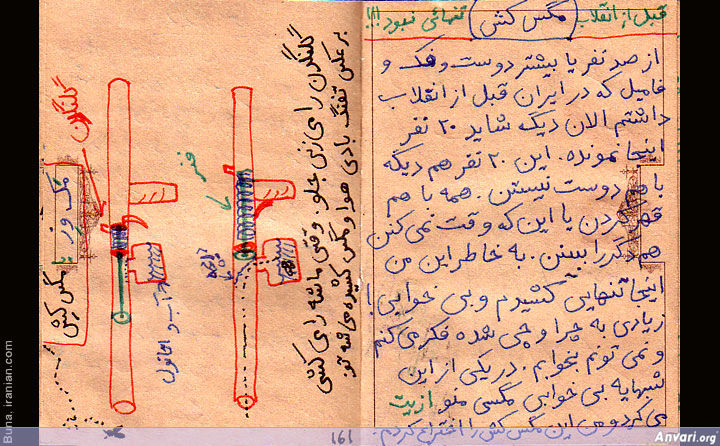 قبل از انقلاب (مگس کش) تنهائی نبود!!!
از صد نفر یا بیشتر دوست و فک و
فامیل که در ایران قبل از انقلاب
داشتم الان دیگ شاید ۲۰ نفر
اینجا نمونده. این ۲۰ نفر هم دیگه
با هم دوست نیستن. همه با هم
قهر کردن یا این که وقت نمی کنن
همدیگر را ببینن. به خاطر این من
اینجا تنهایی کشیدم و بی خوابی با
زیادی به چرا و چی شده فکر می کنم
و نمی تونم بخوابم. در یکی از این
شبهایه بی خوابی مگسی منو ازیت
می کرد و من این مگس کش را اختراع کردم.
برعکس تفنگ بادی هوا و مگس کشیده می شه تو
گلنگدن را می زنی جلو. وقتی ماشه را می کشی
فنر
گلنگدن
مگس کش
آب و الکل
161
Buna. iranian.com
Anvari.org